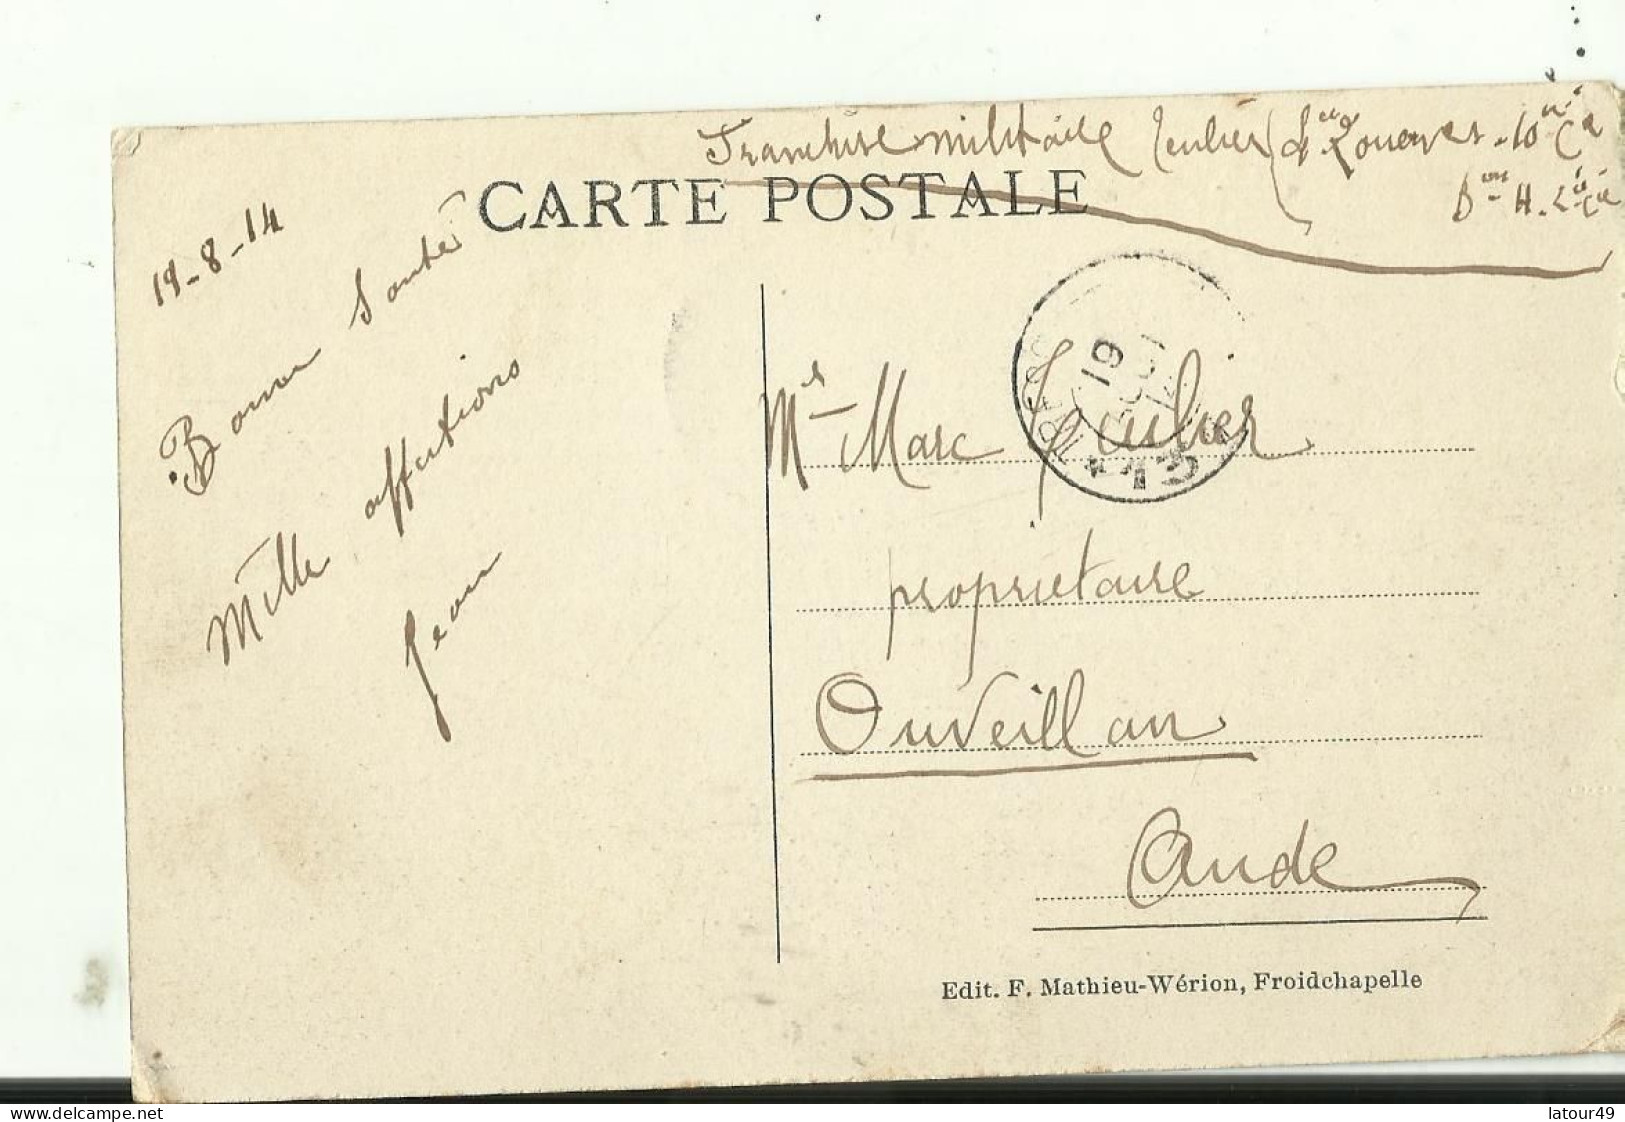 Franchise militaire Jeulier 2e Zouaves - 10me Cie
CARTE POSTALE
18-8-14
Bonne Santé
Mille affections
Jean
19
Mr Marc Jeulier
propriétaire
Ouveillan
Aude
Edit. F. Mathieu-Wérion, Froidchapelle
delcampe.net
latour49